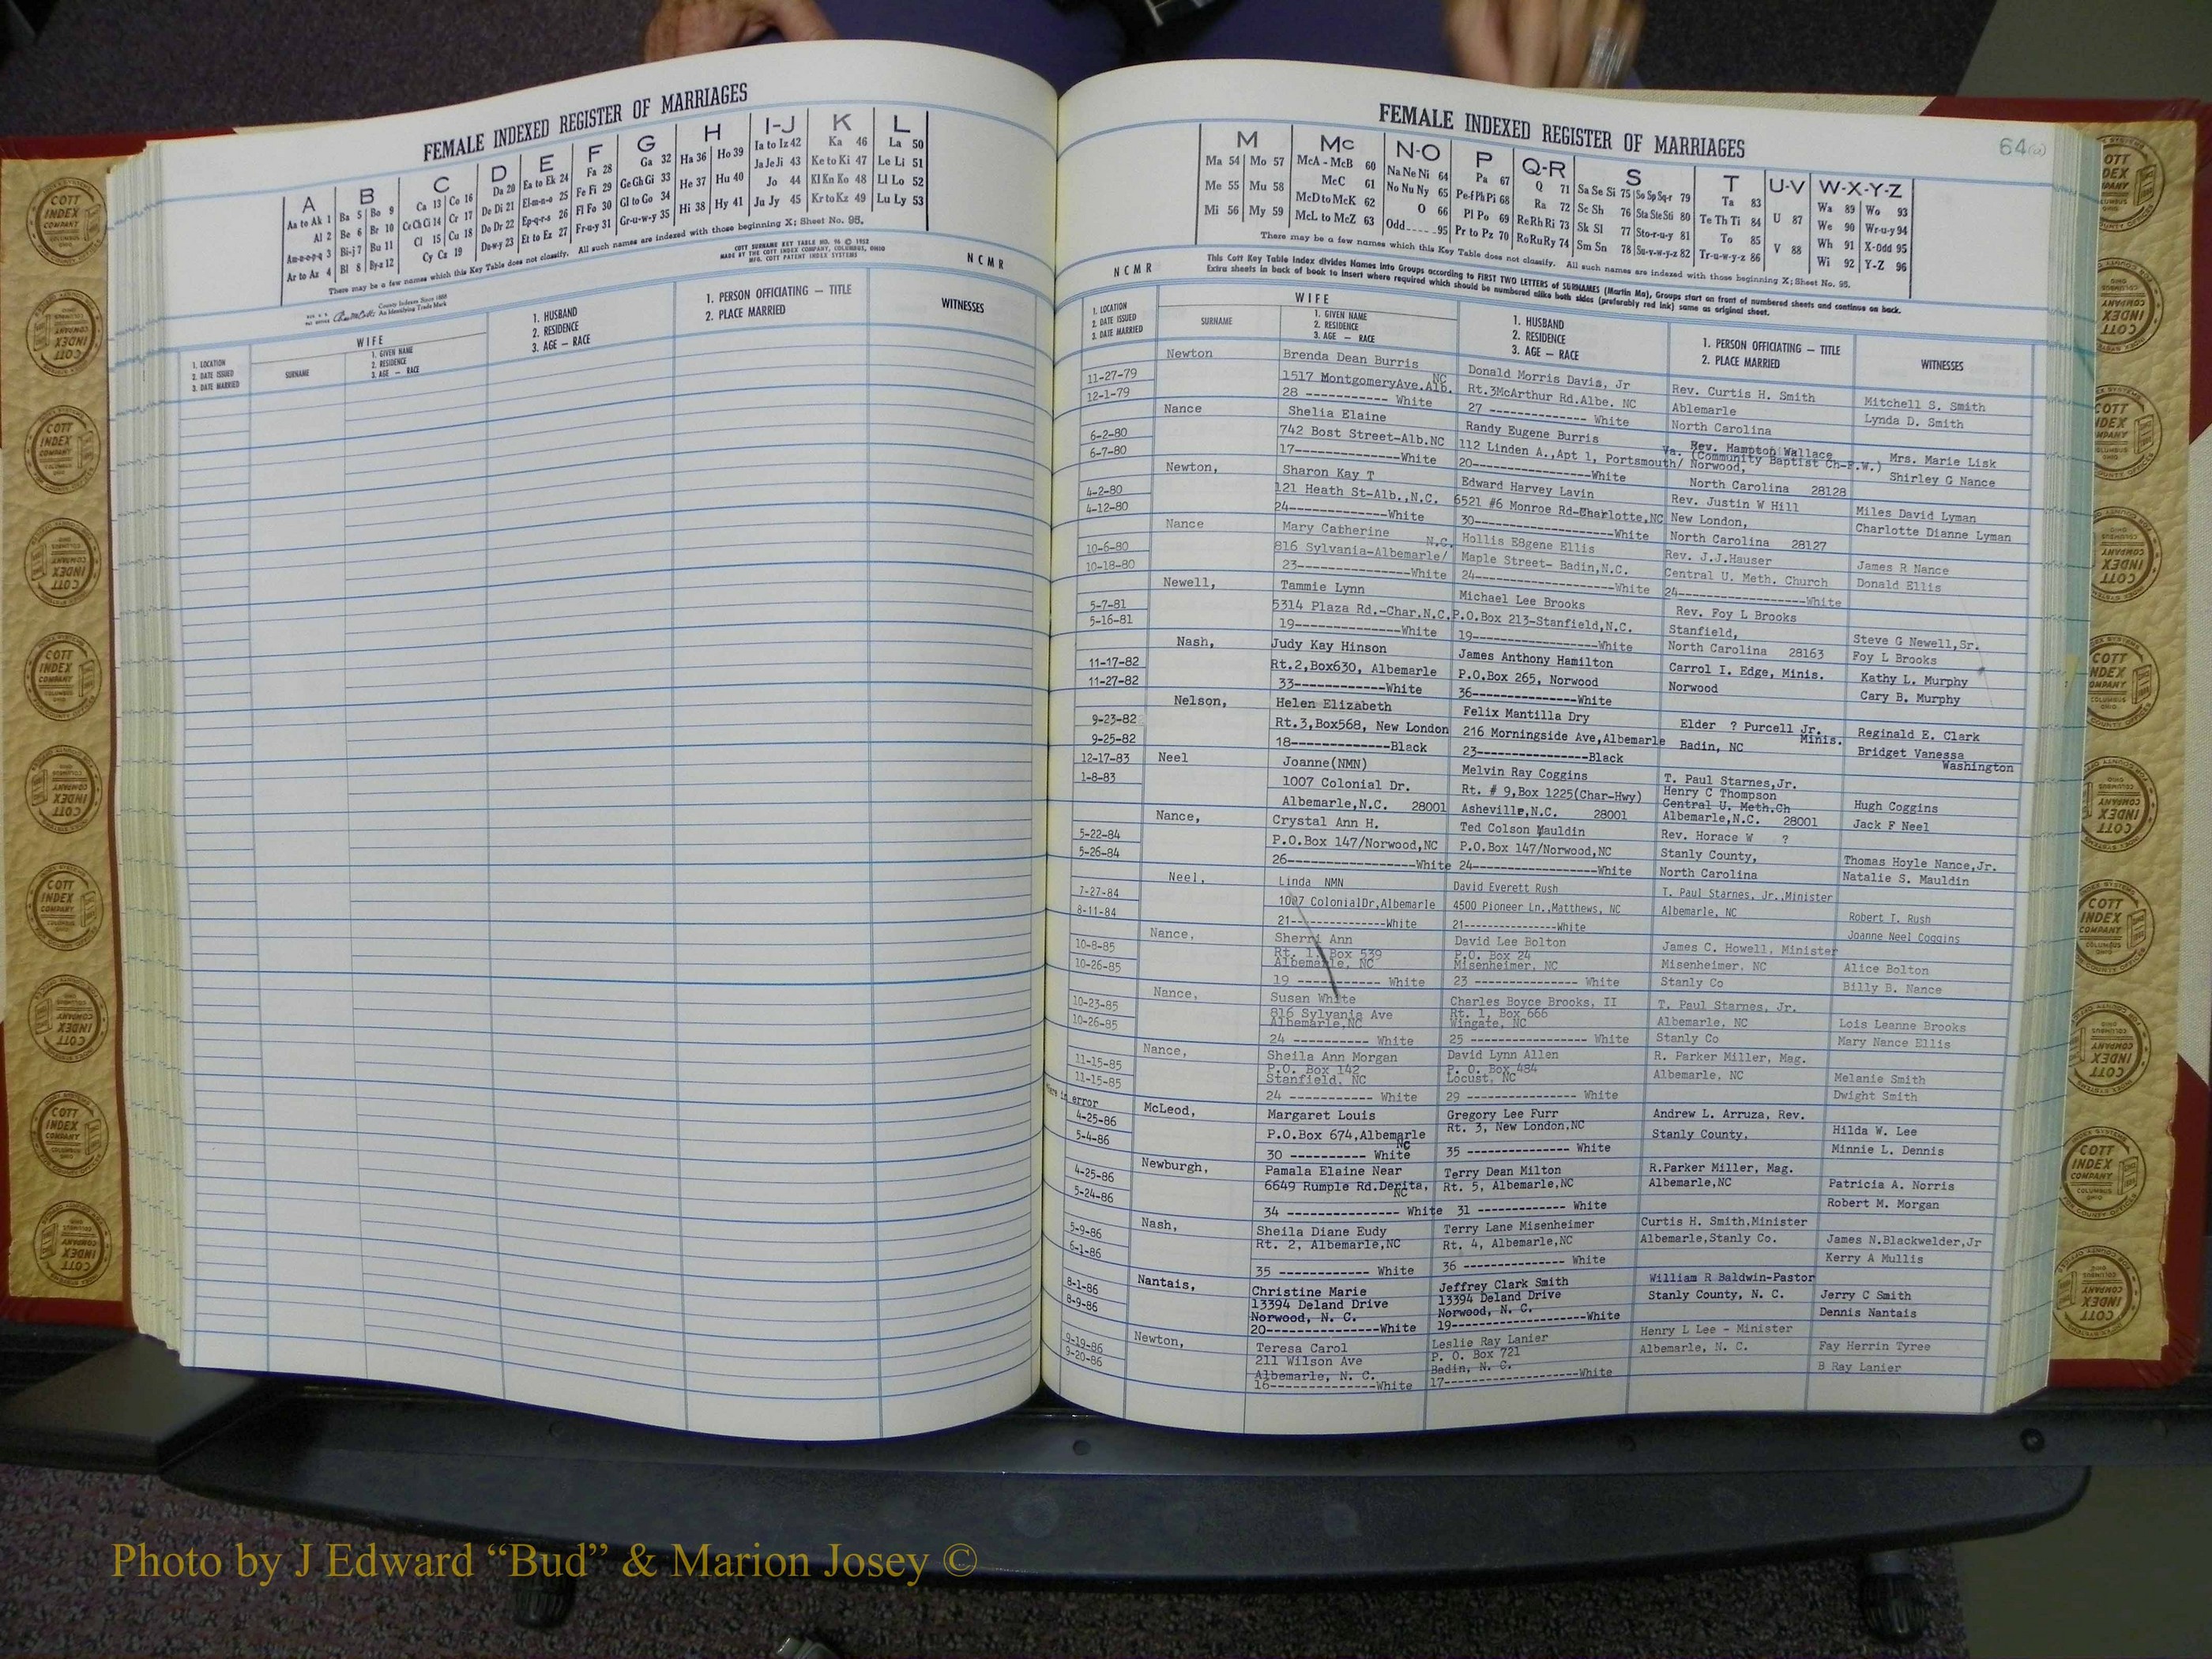 FEMALE INDEXED REGISTER OF MARRIAGES
A B C D E F G H I-J K L
Aa to Ak 1 Ba 5 Bo 9 Ca 13 Co 16 Da 20 Ea to Ek 24 Fa 28 Ga 32 Ha 36 Ho 39 Ia to Iz 42 Ka 46 La 50
Al 2 Be 6 Br 10 Ce Ch Ci 14 Cr 17 De Di 21 El-m-n-o 25 Fe Fi 29 Ge Gh Gi 33 He 37 Hu 40 Ja Je Ji 43 Ke to Ki 47 Le Li 51
Am-n-o-p-q 3 Bi-j 7 Bu 11 Cl 15 Cu 18 Do Dr 22 Ep-q-r-s 26 Fl Fo 30 Gl to Go 34 Hi 38 Hy 41 Jo 44 Kl Kn Ko 48 Ll Lo 52
Ar to Az 4 Bl 8 By-z 12 Cy Cz 19 Du-w-y 23 Et to Ez 27 Fr-u-y 31 Gr-u-w-y 35 Ju Jy 45 Kr to Kz 49 Lu Ly 53
There may be a few names which this Key Table does not classify. All such names are indexed with those beginning X; Sheet No. 95.
COTT SURNAME KEY TABLE NO. 96 © 1952
MADE BY THE COTT INDEX COMPANY, COLUMBUS, OHIO
MFG. COTT PATENT INDEX SYSTEMS
N C M R
County Indexes Since 1888
An Identifying Trade Mark
1. LOCATION
2. DATE ISSUED
3. DATE MARRIED
WIFE
SURNAME
1. GIVEN NAME
2. RESIDENCE
3. AGE — RACE
1. HUSBAND
2. RESIDENCE
3. AGE — RACE
1. PERSON OFFICIATING — TITLE
2. PLACE MARRIED
WITNESSES
64(a)
FEMALE INDEXED REGISTER OF MARRIAGES
M Mc N-O P Q-R S T U-V W-X-Y-Z
Ma 54 Mo 57 McA - McB 60 Na Ne Ni 64 Pa 67 Q 71 Sa Se Si 75 So Sp Sq-r 79 Ta 83 U 87 Wa 89 Wo 93
Me 55 Mu 58 McC 61 No Nu Ny 65 Pe-f Ph Pi 68 Ra 72 Sc Sh 76 Sta Ste Sti 80 Te Th Ti 84 V 88 We 90 Wr-u-y 94
Mi 56 My 59 McD to McK 62 O 66 Pl Po 69 Re Rh Ri 73 Sk Sl 77 Sto-r-u-y 81 To 85 Wh 91 X-Odd 95
McL to McZ 63 Odd 95 Pr to Pz 70 Ro Ru Ry 74 Sm Sn 78 Su-v-w-y-z 82 Tr-u-w-y-z 86 Wi 92 Y-Z 96
There may be a few names which this Key Table does not classify. All such names are indexed with those beginning X; Sheet No. 95.
N C M R
This Cott Key Table Index divides Names into Groups according to FIRST TWO LETTERS of SURNAMES (Martin Ma), Groups start on front of numbered sheets and continue on back.
Extra sheets in back of book to insert where required which should be numbered alike both sides (preferably red ink) same as original sheet.
1. LOCATION
2. DATE ISSUED
3. DATE MARRIED
WIFE
SURNAME
1. GIVEN NAME
2. RESIDENCE
3. AGE — RACE
1. HUSBAND
2. RESIDENCE
3. AGE — RACE
1. PERSON OFFICIATING — TITLE
2. PLACE MARRIED
WITNESSES
Newton Brenda Dean Burris Donald Morris Davis, Jr Rev. Curtis H. Smith Mitchell S. Smith
11-27-79 1517 MontgomeryAve.Alb. NC Rt.3McArthur Rd.Albe. NC Ablemarle Lynda D. Smith
12-1-79 28 ----------- White 27 ------------- White North Carolina
Nance Shelia Elaine Randy Eugene Burris Rev. Hampton Wallace Mrs. Marie Lisk
6-2-80 742 Bost Street-Alb.NC 112 Linden A.,Apt 1, Portsmouth/ Va. (Community Baptist Ch-F.W.) Norwood, Shirley G Nance
6-7-80 17-------------White 20--------------White North Carolina 28128
Newton, Sharon Kay T Edward Harvey Lavin Rev. Justin W Hill Miles David Lyman
4-2-80 121 Heath St-Alb.,N.C. 6521 #6 Monroe Rd-Charlotte,NC New London, Charlotte Dianne Lyman
4-12-80 24-------------White 30---------------White North Carolina 28127
Nance Mary Catherine Hollis E8gene Ellis Rev. J.J.Hauser James R Nance
10-6-80 816 Sylvania-Albemarle/ N.C. Maple Street- Badin,N.C. Central U. Meth. Church Donald Ellis
10-18-80 23--------------White 24-----------------White 24-----------------White
Newell, Tammie Lynn Michael Lee Brooks Rev. Foy L Brooks Steve G Newell,Sr.
5-7-81 5314 Plaza Rd.-Char.N.C. P.O.Box 213-Stanfield,N.C. Stanfield, Foy L Brooks
5-16-81 19--------------White 19---------------White North Carolina 28163
Nash, Judy Kay Hinson James Anthony Hamilton Carrol I. Edge, Minis. Kathy L. Murphy
11-17-82 Rt.2,Box630, Albemarle P.O.Box 265, Norwood Norwood Cary B. Murphy
11-27-82 33------------White 36-------------White
Nelson, Helen Elizabeth Felix Mantilla Dry Elder ? Purcell Jr. Minis. Reginald E. Clark
9-23-82 Rt.3,Box568, New London 216 Morningside Ave,Albemarle Badin, NC Bridget Vanessa Washington
9-25-82 18-------------Black 23--------------Black
12-17-83 Neel Joanne(NMN) Melvin Ray Coggins T. Paul Starnes,Jr. Hugh Coggins
1-8-83 1007 Colonial Dr. Rt. # 9,Box 1225(Char-Hwy) Henry C Thompson Jack F Neel
Central U. Meth.Ch
Albemarle,N.C. 28001 Asheville,N.C. 28001 Albemarle,N.C. 28001
Nance, Crystal Ann H. Ted Colson Mauldin Rev. Horace W ? Thomas Hoyle Nance,Jr.
5-22-84 P.O.Box 147/Norwood,NC P.O.Box 147/Norwood,NC Stanly County, Natalie S. Mauldin
5-26-84 26-----------------White 24-----------------White North Carolina
Neel, Linda NMN David Everett Rush T. Paul Starnes, Jr.,Minister Robert T. Rush
7-27-84 1007 ColonialDr,Albemarle 4500 Pioneer Ln.,Matthews, NC Albemarle, NC Joanne Neel Coggins
8-11-84 21--------------White 21--------------White
Nance, Sherri Ann David Lee Bolton James C. Howell, Minister Alice Bolton
10-8-85 Rt. 1, Box 539 P.O. Box 24 Misenheimer, NC Billy B. Nance
10-26-85 Albemarle, NC Misenheimer, NC Stanly Co
19 ----------- White 23 ------------- White
Nance, Susan White Charles Boyce Brooks, II T. Paul Starnes, Jr. Lois Leanne Brooks
10-23-85 816 Sylvania Ave Rt. 1, Box 666 Albemarle, NC Mary Nance Ellis
10-26-85 Albemarle,NC Wingate, NC Stanly Co
24 ---------- White 25 --------------- White
Nance, Sheila Ann Morgan David Lynn Allen R. Parker Miller, Mag. Melanie Smith
11-15-85 P.O. Box 142 P. O. Box 484 Albemarle, NC Dwight Smith
11-15-85 Stanfield, NC Locust, NC
24 ----------- White 29 -------------- White
error
McLeod, Margaret Louis Gregory Lee Furr Andrew L. Arruza, Rev. Hilda W. Lee
4-25-86 P.O.Box 674,Albemarle NC Rt. 3, New London.NC Stanly County, Minnie L. Dennis
5-4-86 30 ---------- White 35 -------------- White
Newburgh, Pamala Elaine Near Terry Dean Milton R.Parker Miller, Mag. Patricia A. Norris
4-25-86 6649 Rumple Rd.Derita, NC Rt. 5, Albemarle,NC Albemarle,NC Robert M. Morgan
5-24-86 34 --------------- White 31 ------------ White
Nash, Sheila Diane Eudy Terry Lane Misenheimer Curtis H. Smith,Minister James N.Blackwelder,Jr
5-9-86 Rt. 2, Albemarle,NC Rt. 4, Albemarle,NC Albemarle,Stanly Co. Kerry A Mullis
6-1-86 35 ------------ White 36 -------------- White
Nantais, Christine Marie Jeffrey Clark Smith William R Baldwin-Pastor Jerry C Smith
8-1-86 13394 Deland Drive 13394 Deland Drive Stanly County, N. C. Dennis Nantais
8-9-86 Norwood, N. C. Norwood, N. C.
20---------------White 19-----------------White
Newton, Teresa Carol Leslie Ray Lanier Henry L Lee - Minister Fay Herrin Tyree
9-19-86 211 Wilson Ave P. O. Box 721 Albemarle, N. C. B Ray Lanier
9-20-86 Albemarle, N. C. Badin, N. C.
16---------------White 17------------------White
COTT INDEX COMPANY COLUMBUS OHIO
Photo by J Edward “Bud” & Marion Josey ©